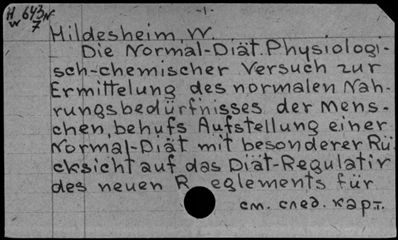 H 643 N
W 7
-1-
Hildesheim, W.
Die Normal-Diät. Physiologi-
sch-chemischer Versuch zur
Ermittelung des normalen Nah-
rungsbedürfnisses der Mens-
chen, behufs Aufstellung einer
Normal-Diät mit besonderer Rü-
cksicht auf das Diät-Regulativ
des neuen R eglements für
см. след. карт.